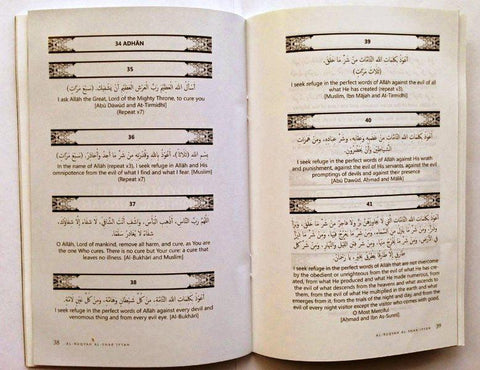 34 ADHĀN
35
أَسْأَلُ اللهَ الْعَظِيْمَ رَبَّ الْعَرْشِ الْعَظِيْمِ أَنْ يَشْفِيَكَ. (سَبْعَ مَرَّاتٍ)
I ask Allāh the Great, Lord of the Mighty Throne, to cure you
[Abū Dāwūd and At-Tirmidhī]
(Repeat x7)
36
بِسْمِ اللهِ (ثَلَاثًا)، أَعُوْذُ بِاللهِ وَقُدْرَتِهِ مِنْ شَرِّ مَا أَجِدُ وَأُحَاذِرُ. (سَبْعَ مَرَّاتٍ)
In the name of Allāh (repeat x3), I seek refuge in Allāh and His
omnipotence from the evil of what I find and what I fear. [Muslim]
(Repeat x7)
37
اللَّهُمَّ رَبَّ النَّاسِ، أَذْهِبِ الْبَأْسَ، وَاشْفِ أَنْتَ الشَّافِي، لَا شِفَاءَ إِلَّا شِفَاؤُكَ،
شِفَاءً لَا يُغَادِرُ سَقَمًا.
O Allāh, Lord of mankind, remove all harm, and cure, as You are
the one Who cures. There is no cure but Your cure: a cure that
leaves no illness. [Al-Bukhārī and Muslim]
38
أَعُوْذُ بِكَلِمَاتِ اللهِ التَّامَّةِ، مِنْ كُلِّ شَيْطَانٍ وَهَامَّةٍ، وَمِنْ كُلِّ عَيْنٍ لَامَّةٍ.
I seek refuge in the perfect words of Allāh against every devil and
venomous thing and from every evil eye. [Al-Bukhārī]
38
AL-RUQYAH AL-SHARʿIYYAH
39
أَعُوْذُ بِكَلِمَاتِ اللهِ التَّامَّاتِ مِنْ شَرِّ مَا خَلَقَ.
(ثَلَاثَ مَرَّاتٍ)
I seek refuge in the perfect words of Allāh against the evil of all
what He has created (repeat x3).
[Muslim, Ibn Mājah and At-Tirmidhī]
40
أَعُوْذُ بِكَلِمَاتِ اللهِ التَّامَّاتِ مِنْ غَضَبِهِ وَعِقَابِهِ، وَشَرِّ عِبَادِهِ، وَمِنْ هَمَزَاتِ
الشَّيَاطِيْنِ وَأَنْ يَحْضُرُوْنَ.
I seek refuge in the perfect words of Allāh against His wrath
and punishment, against the evil of His servants, against the evil
promptings of devils and against their presence
[Abū Dāwūd, Aḥmad and Mālik]
41
أَعُوْذُ بِكَلِمَاتِ اللهِ التَّامَّاتِ الَّتِي لَا يُجَاوِزُهُنَّ بَرٌّ وَلَا فَاجِرٌ مِنْ شَرِّ مَا
I seek refuge in the perfect words of Allāh that are not overcome
by the obedient or unrighteous from the evil of what He has cre-
ated, from what He produced and what He made numerous, from
the evil of what descends from the heavens and what ascends
to them, from the evil of what He multiplied in the earth and what
emerges from it, from the trials of the night and day, and from the
evil of every night visitor except the visitor who comes with good.
O Most Merciful
[Aḥmad and Ibn As-Sunnī].
AL-RUQYAH AL-SHARʿIYYAH
39